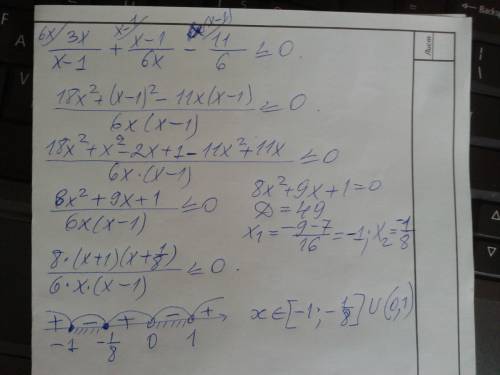 6x/ 3x/(x-1) + x-1/ (x-1)/6x - x(x-1)/ 11/6 ≤ 0.
(18x² + (x-1)² - 11x(x-1))/(6x(x-1)) ≤ 0.
(18x² + x² - 2x + 1 - 11x² + 11x)/(6x·(x-1)) ≤ 0
(8x² + 9x + 1)/(6x(x-1)) ≤ 0
8x² + 9x + 1 = 0
D = 49
x₁ = (-9-7)/16 = -1; x₂ = -1/8
(8·(x+1)(x+1/8))/(6·x·(x-1)) ≤ 0.
+ - + - +
-1 -1/8 0 1
x ∈ [-1; -1/8] ∪ (0,1)
Лист